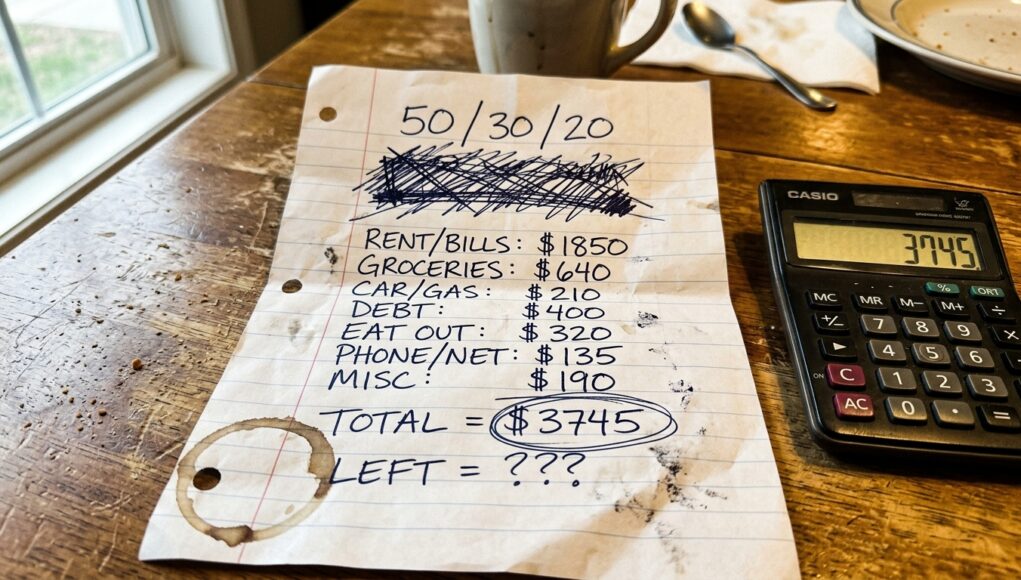 50/30/20
RENT/BILLS: $1850
GROCERIES: $640
CAR/GAS: $210
DEBT: $400
EAT OUT: $320
PHONE/NET: $135
MISC: $190
TOTAL = $3745
LEFT = ???
CASIO
3745.
% ORT
MC MR M– M+ ÷
+/– 7 8 9 X
▶ 4 5 6
ON C 1 2 3
AC 0 · =